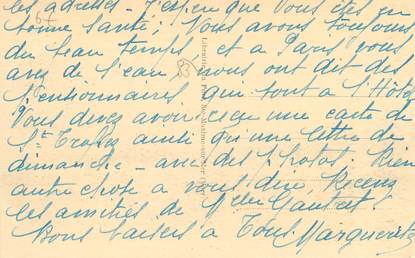 les adresses - J'espère que Vous êtes en
bonne santé; Vous avez toujours
du beau temps - et a Paris vous
avez de l'eau, nous ont dit des
Pensionnaires que sont a l'Hôtel
Vous devez avoir reçu une carte de
St Tropez ainsi qu'une lettre de
dimanche - avec des photos. Rien
autre chose a vous dire, Recevez
les amitiés de Gautret.
Bons baisers a Tous Marguerite
67